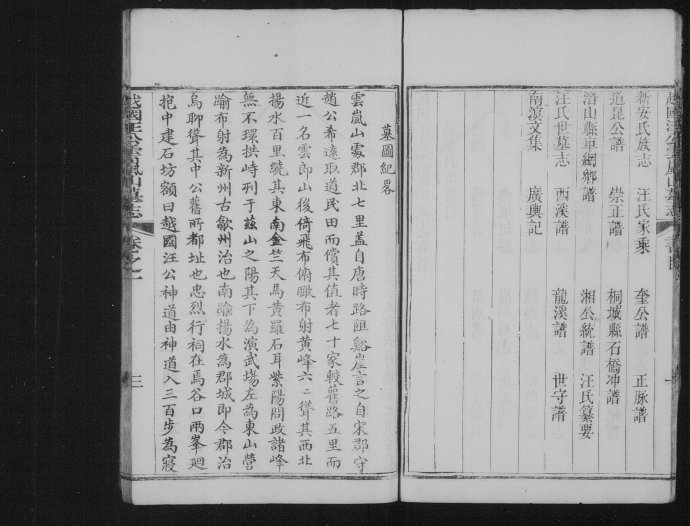 新安氏族志　汪氏家乘　奎公譜　正脉譜
道昆公譜　崇正譜　桐城縣石橋冲譜
潛山縣車網鄉譜　湘公統譜　汪氏纂要
汪氏世墓志　西溪譜　龍溪譜　世守譜
南濱文集　廣輿記
越國汪公雲嵐山墓志　卷之一　三
墓圖紀畧
雲嵐山處郡北七里蓋自唐時路阻谿崖言之自宋郡守
趙公希遠取道民田而償其值者七十家較舊路五里而
近一名雲郎山後倚飛布俯瞰布射黃峰六六聳其西北
揚水百里繞其東南金竺天馬黃羅石耳紫陽問政諸峰
無不環拱峙列于茲山之陽其下為演武塲左為東山營
踰布射為新州古歙州治也南踰揚水為郡城即今郡治
烏聊聳其中公舊所都址也忠烈行祠在焉谷口兩峯廻
抱中建石坊額曰越國汪公神道由神道入三百步為寢